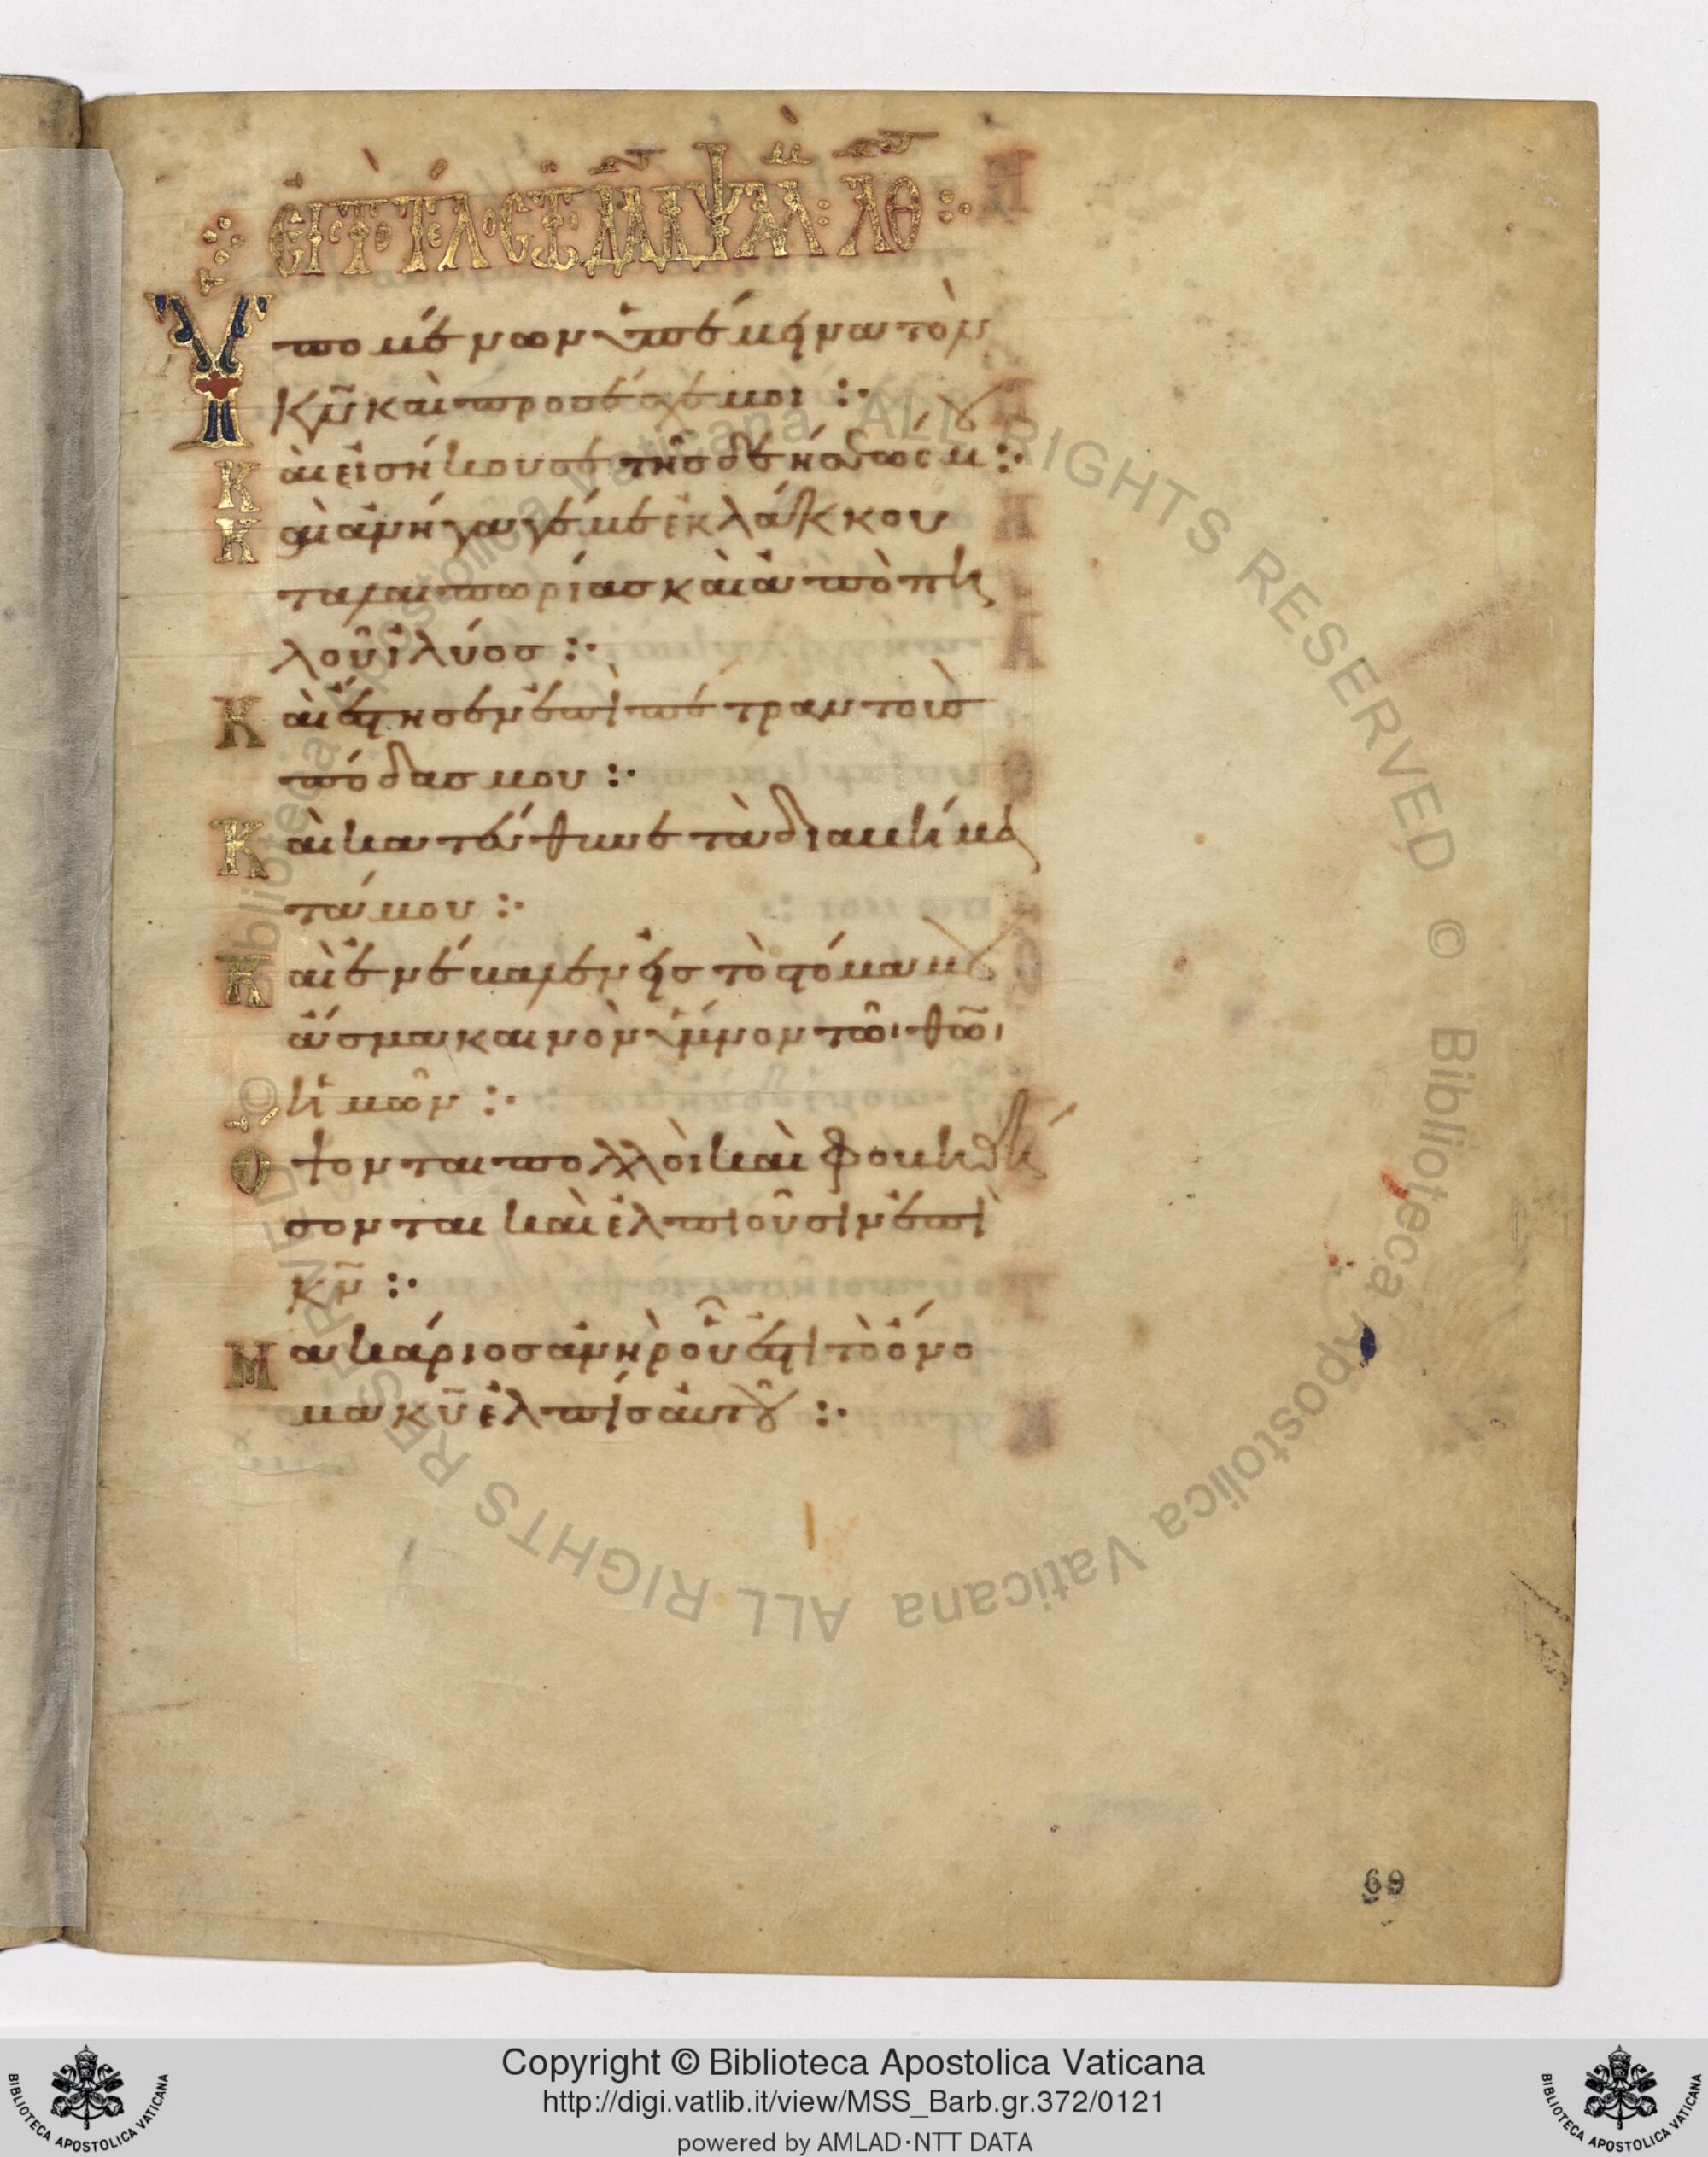 εἰς τὸ τέλος τῷ δαδ ψαλμ λθ
Ὑπομένων ὑπέμηνα τὸν
κν̄ καὶ προσέσχε μοι :·
Καὶ εἰσήκουσε τῆς δεήσεώς μ :·
Καὶ ἀνήγαγέ με ἐκ λάκκου
ταλαιπωρίας καὶ ἀπὸ πη
λοῦ ἰλύος :·
Καὶ ἔστησεν ἐπὶ πέτραν τοὺς
πόδας μου :·
Καὶ κατεύθυνε τὰ διαβήμα
τά μου :·
Καὶ ἐνέβαλεν εἰς τὸ στόμα μου
ἄσμα καινὸν ὕμνον τῶι θῶι
ἡμῶν :·
Ὄψονται πολλοὶ καὶ φοβηθή
σονται καὶ ἐλπιοῦσιν ἐπὶ
κν̄ :·
Μακάριος ἀνὴρ οὗ ἐστὶ τὸ ὄνο
μα κῡ ἐλπὶς αὐτοῦ :·
69
Copyright © Biblioteca Apostolica Vaticana
http://digi.vatlib.it/view/MSS_Barb.gr.372/0121
powered by AMLAD·NTT DATA
BIBLIOTECA APOSTOLICA VATICANA
BIBLIOTECA APOSTOLICA VATICANA
© Biblioteca Apostolica Vaticana ALL RIGHTS RESERVED © Biblioteca Apostolica Vaticana ALL RIGHTS RESERVED